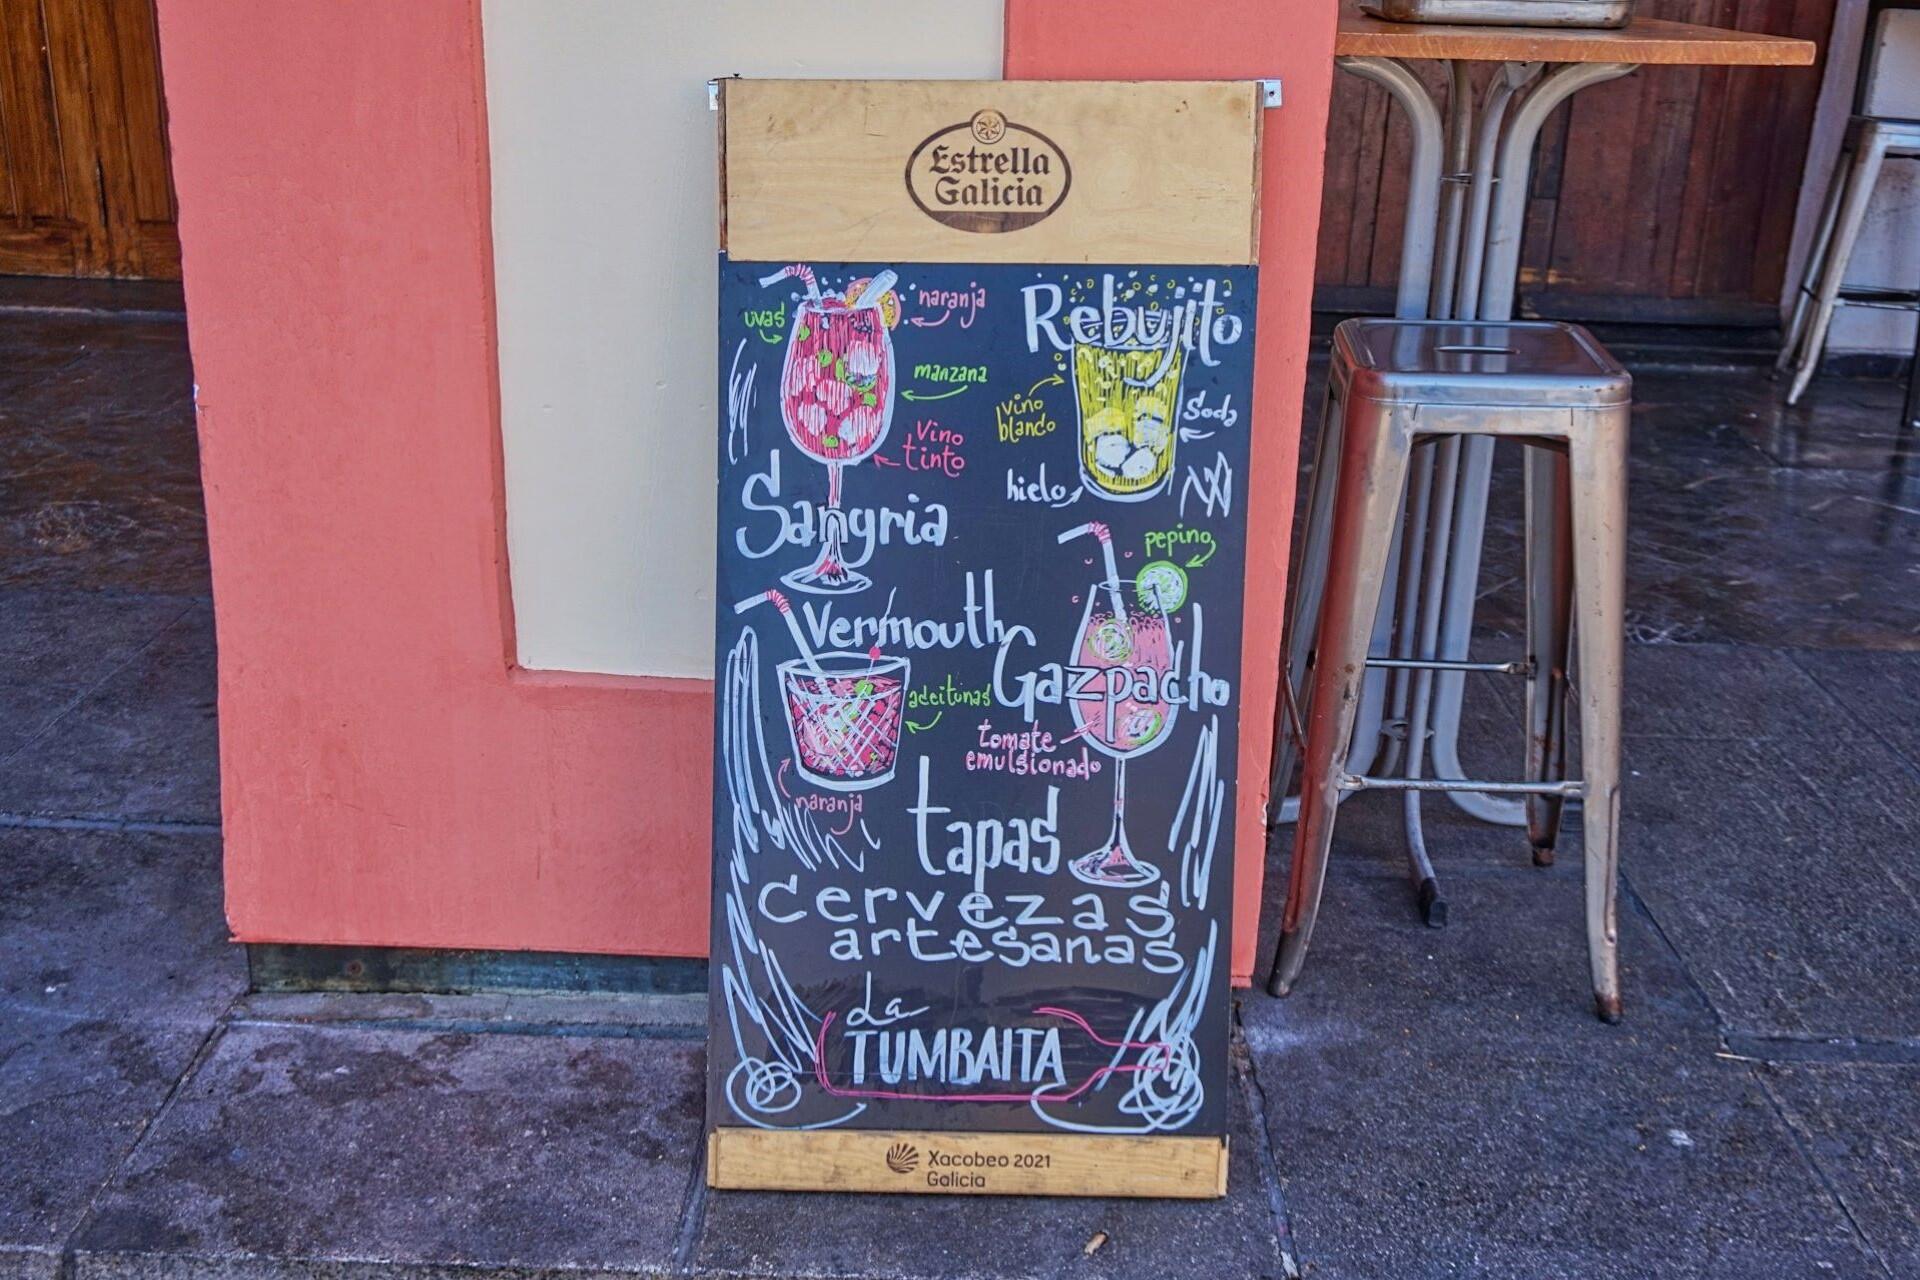 Estrella
Galicia
naranja
uvas
manzana
vino
tinto
Sangria
Rebujito
vino
blanco
Soda
hielo
pepino
Vermouth
aceitunas
naranja
Gazpacho
tomate
emulsionado
tapas
cervezas
artesanas
La
TUMBAITA
Xacobeo 2021
Galicia